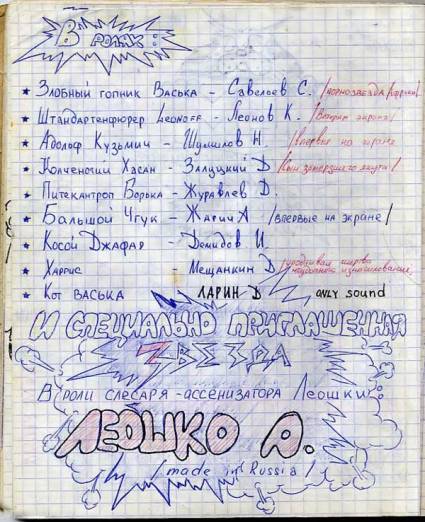 В ролях:
★ Злобный гопник Васька - Савельев С. /порнозвезда Африки/
★ Штандартенфюрер Leonoff - Леонов К. /Ветеран экрана/
★ Адольф Кузьмич - Шумилов Н. /Впервые на экране
★ Колченогий Хасан - Залуцкий Д /Сын замёрзшего якута/
★ Питекантроп Борька - Журавлев Д.
★ Большой Чгук - Жарий А /впервые на экране/
★ Косой Джафар - Демидов И.
★ Харрис - Мещанкин Д /уродливая жертва неудачного изнасилования/
★ Кот Васька ЛАРИН Д only sound
И СПЕЦИАЛЬНО ПРИГЛАШЕННАЯ
ЗВЕЗДА
В роли слесаря-ассенизатора Леошки:
ЛЕОШКО А.
/made in Russia/